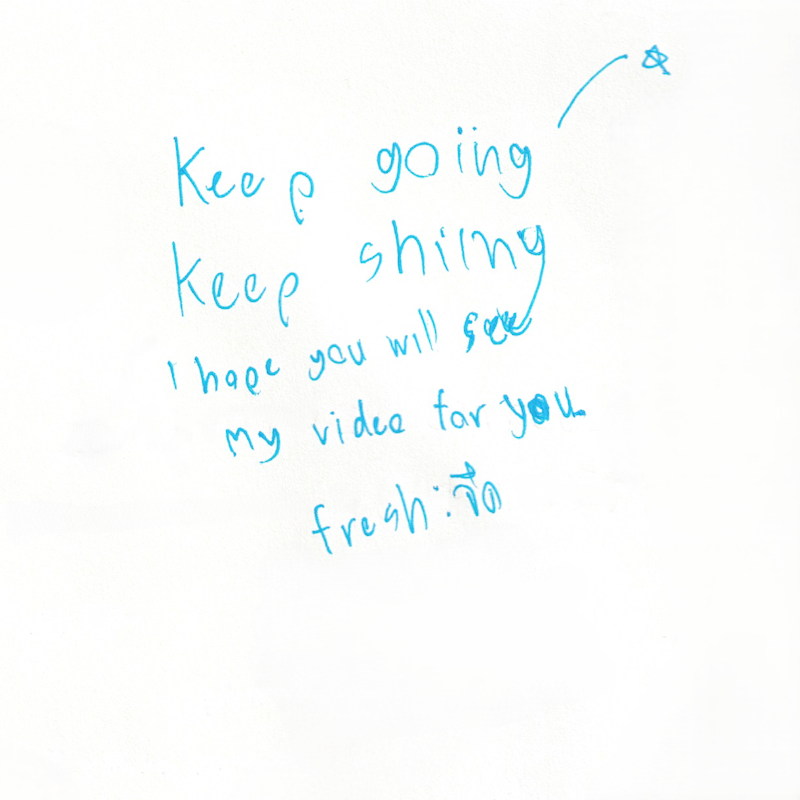 Keep going
Keep shiing
I hope you will see
my video for you
fresh : จืด